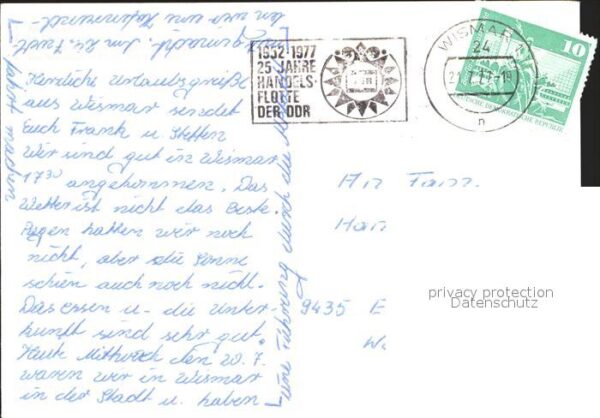 Herzliche Urlaubsgrüße
aus Wismar sendet
Euch Frank u. Steffen
Wir sind gut in Wismar
17³⁰ angekommen. Das
Wetter ist nicht das Beste.
Regen hatten wir noch
nicht, aber die Sonne
schien auch noch nicht.
Das essen u. die Unter-
kunft sind sehr gut.
Heute Mittwoch den 20.7.
waren wir in Wismar
in der Stadt u. haben
eine Führung durch die
gemacht. Am 24.7.
an wir eine Hafenrund-
fahrt machen
1952-1977
25 JAHRE
HANDELS-
FLOTTE
DER DDR
WISMAR
24
n
10
DEUTSCHE DEMOKRATISCHE REPUBLIK
An Fam.
Han
9435 E
W.
privacy protection
Datenschutz